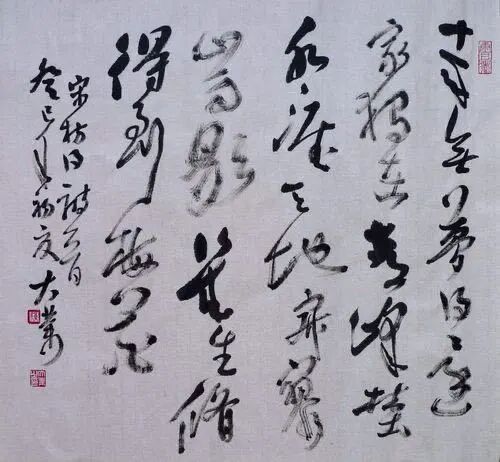 十年無夢得還
家獨立青峰埜
水涯天地寂寥
山雨歇幾生修
得到梅花
宋枋得詩一首
癸巳年初夏大